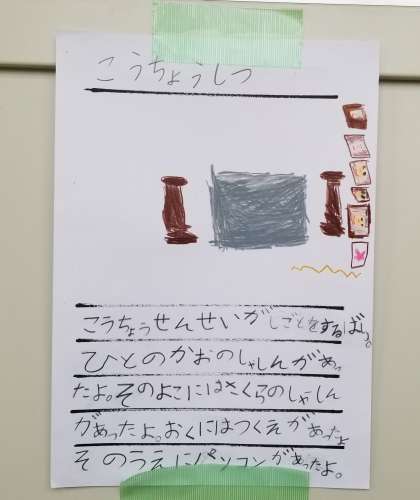 こうちょうしつ
こうちょうせんせいがしごとをするばしょ。
ひとのかおのしゃしんがあっ
たよ。そのよこにはさくらのしゃしん
があったよ。おくにはつくえがあったよ
そのうえにパソコンがあったよ。